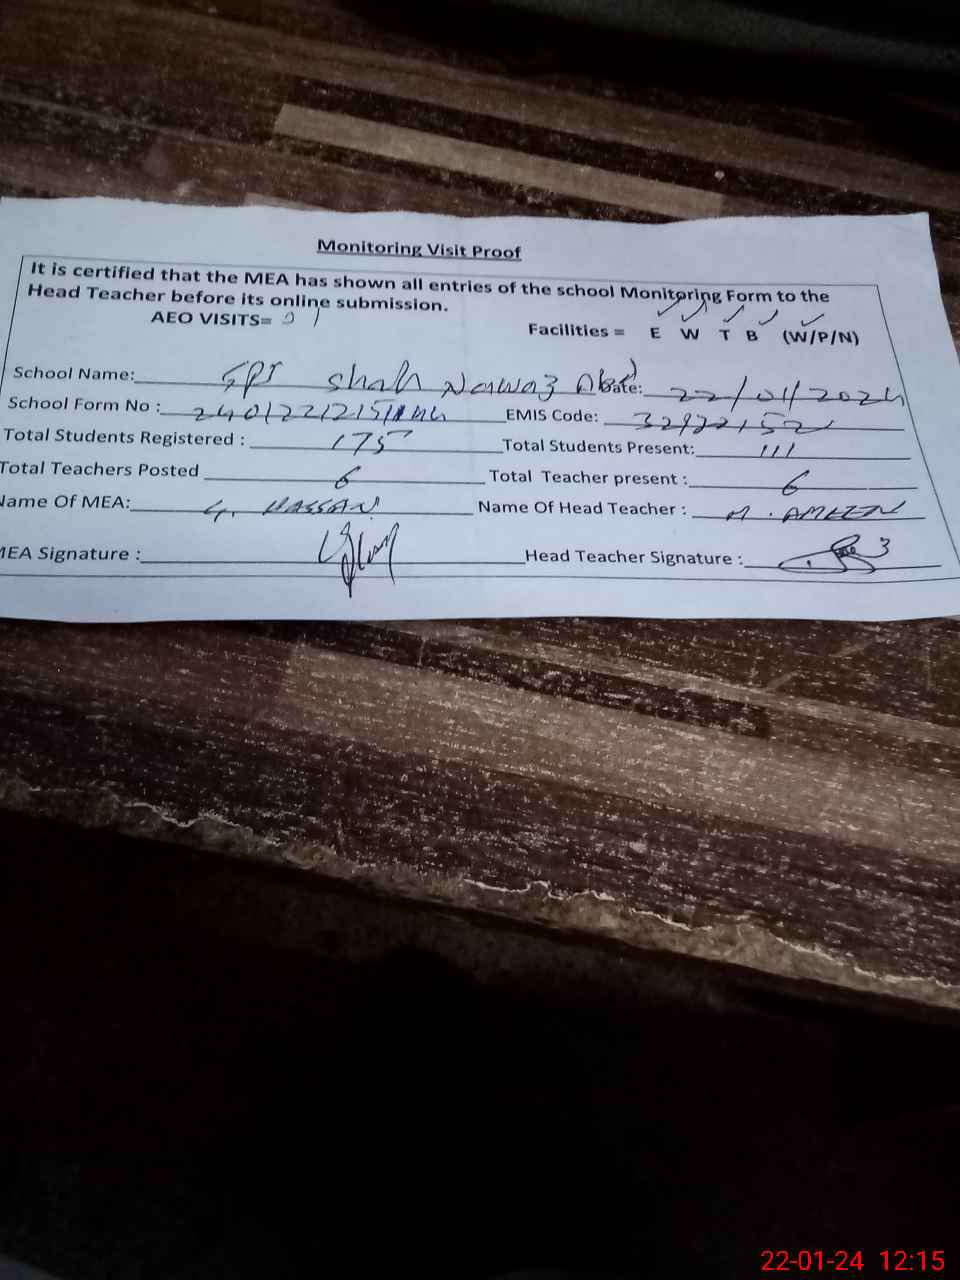 Monitoring Visit Proof
It is certified that the MEA has shown all entries of the school Monitoring Form to the
Head Teacher before its online submission.
AEO VISITS= 01
Facilities = E W T B (W/P/N)
School Name: GPS Shah Nawaz Abad Date: 22/01/2024
School Form No : EMIS Code:
Total Students Registered : 175 Total Students Present: 111
Total Teachers Posted 6 Total Teacher present : 6
Name Of MEA: G. HASSAN Name Of Head Teacher : M. AMEEN
MEA Signature : Head Teacher Signature :
22-01-24 12:15